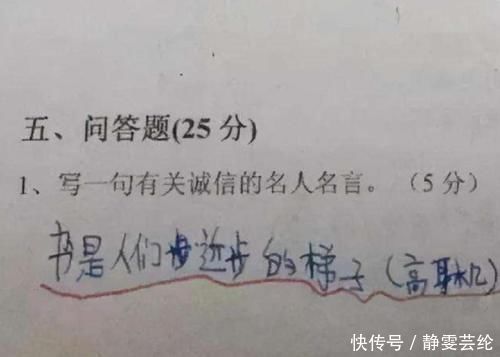 五、问答题(25分)
1、写一句有关诚信的名人名言。（5分）
书是人们进步的梯子(高耿)
快传号/静雯芸纶